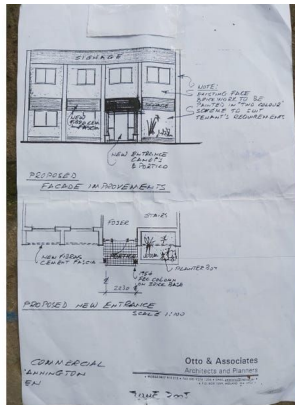 SIGNAGE
NOTE:
EXISTING FACE
BRICKWORK TO BE
PAINTED IN 'TWO COLOUR'
SCHEME TO SUIT
TENANT'S REQUIREMENTS
SIGNAGE
NEW
FASCIA
NEW ENTRANCE
CANOPY
& PORTICO
PROPOSED
FACADE IMPROVEMENTS
FOYER
STAIRS
NEW FIBRE
CEMENT FASCIA
PLANTER BOX
COLUMN
ON BRICK BASE
PROPOSED NEW ENTRANCE
SCALE 1:100
COMMERCIAL
ANNINGTON
EN
Otto & Associates
Architects and Planners